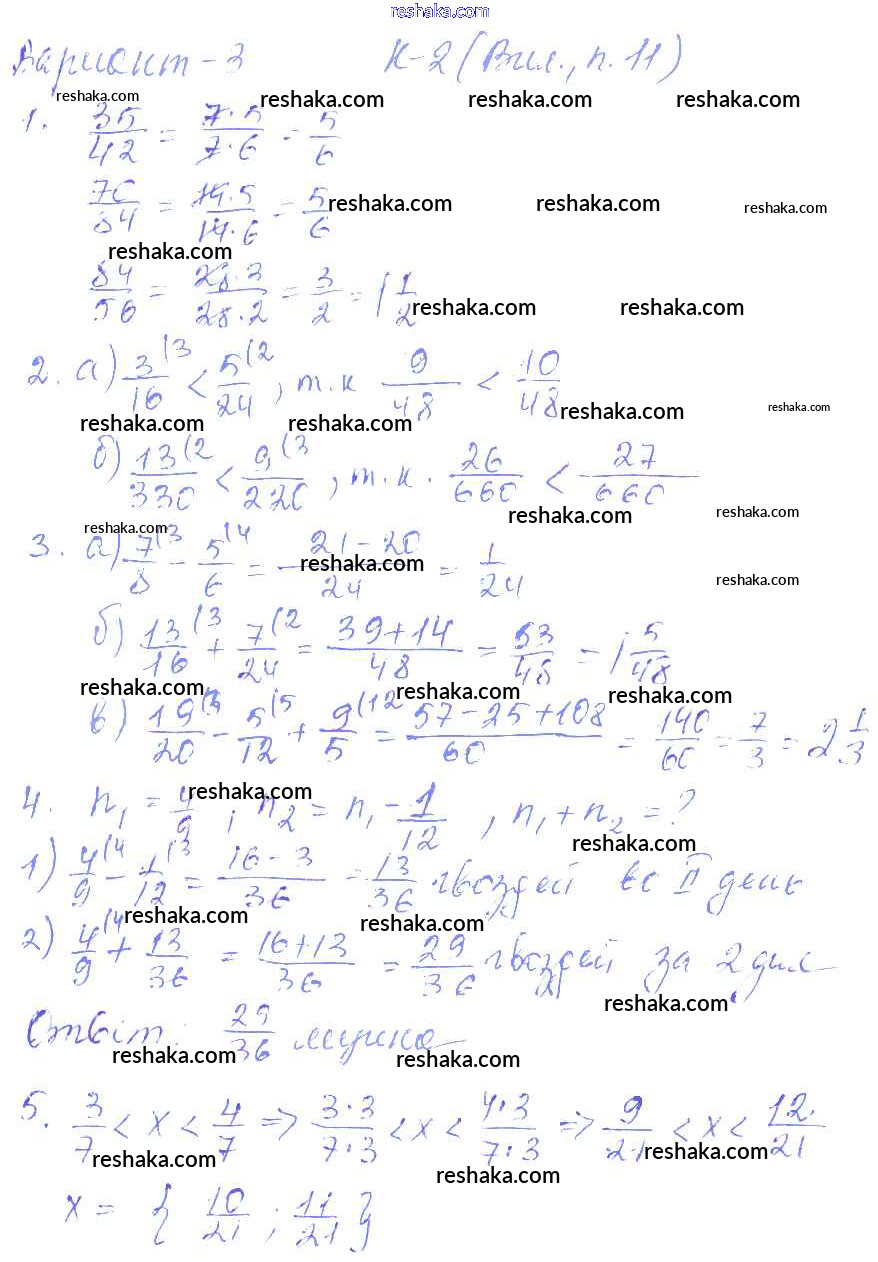 reshaka.com
Вариант-3 К-2 (Вил., п. 11)
reshaka.com reshaka.com reshaka.com reshaka.com
1. 35/42 = 7·5/7·6 = 5/6
70/84 = 14·5/14·6 = 5/6
reshaka.com reshaka.com reshaka.com
reshaka.com
84/56 = 28·3/28·2 = 3/2 = 1 1/2
reshaka.com reshaka.com
2. а) 3/16 (3 < 5/24 (2, т.к 9/48 < 10/48
reshaka.com reshaka.com reshaka.com reshaka.com
б) 13/330 (2 < 9/220 (3, т.к. 26/660 < 27/660
reshaka.com reshaka.com
reshaka.com
3. а) 7/8 (3 - 5/6 (4 = 21-20/24 = 1/24
reshaka.com reshaka.com
б) 13/16 (3 + 7/24 (2 = 39+14/48 = 53/48 = 1 5/48
reshaka.com reshaka.com reshaka.com
в) 19/20 (3 - 5/12 (5 + 9/5 (12 = 57-25+108/60 = 140/60 = 7/3 = 2 1/3
4. n₁ = 4/9; n₂ = n₁ - 1/12, n₁ + n₂ = ?
reshaka.com
reshaka.com
1) 4/9 (4 - 1/12 (3 = 16-3/36 = 13/36 гвоздей во II день
reshaka.com reshaka.com
2) 4/9 (4 + 13/36 = 16+13/36 = 29/36 гвоздей за 2 дня
reshaka.com
Ответ: 29/36
reshaka.com reshaka.com
5. 3/7 < x < 4/7 => 3·3/7·3 < x < 4·3/7·3 => 9/21 < x < 12/21
reshaka.com reshaka.com reshaka.com
x = { 10/21 ; 11/21 }